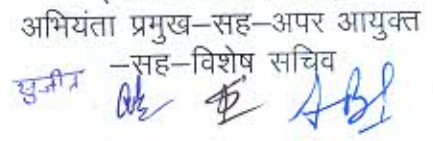 अभियंता प्रमुख–सह–अपर आयुक्त
–सह–विशेष सचिव
सुजीत